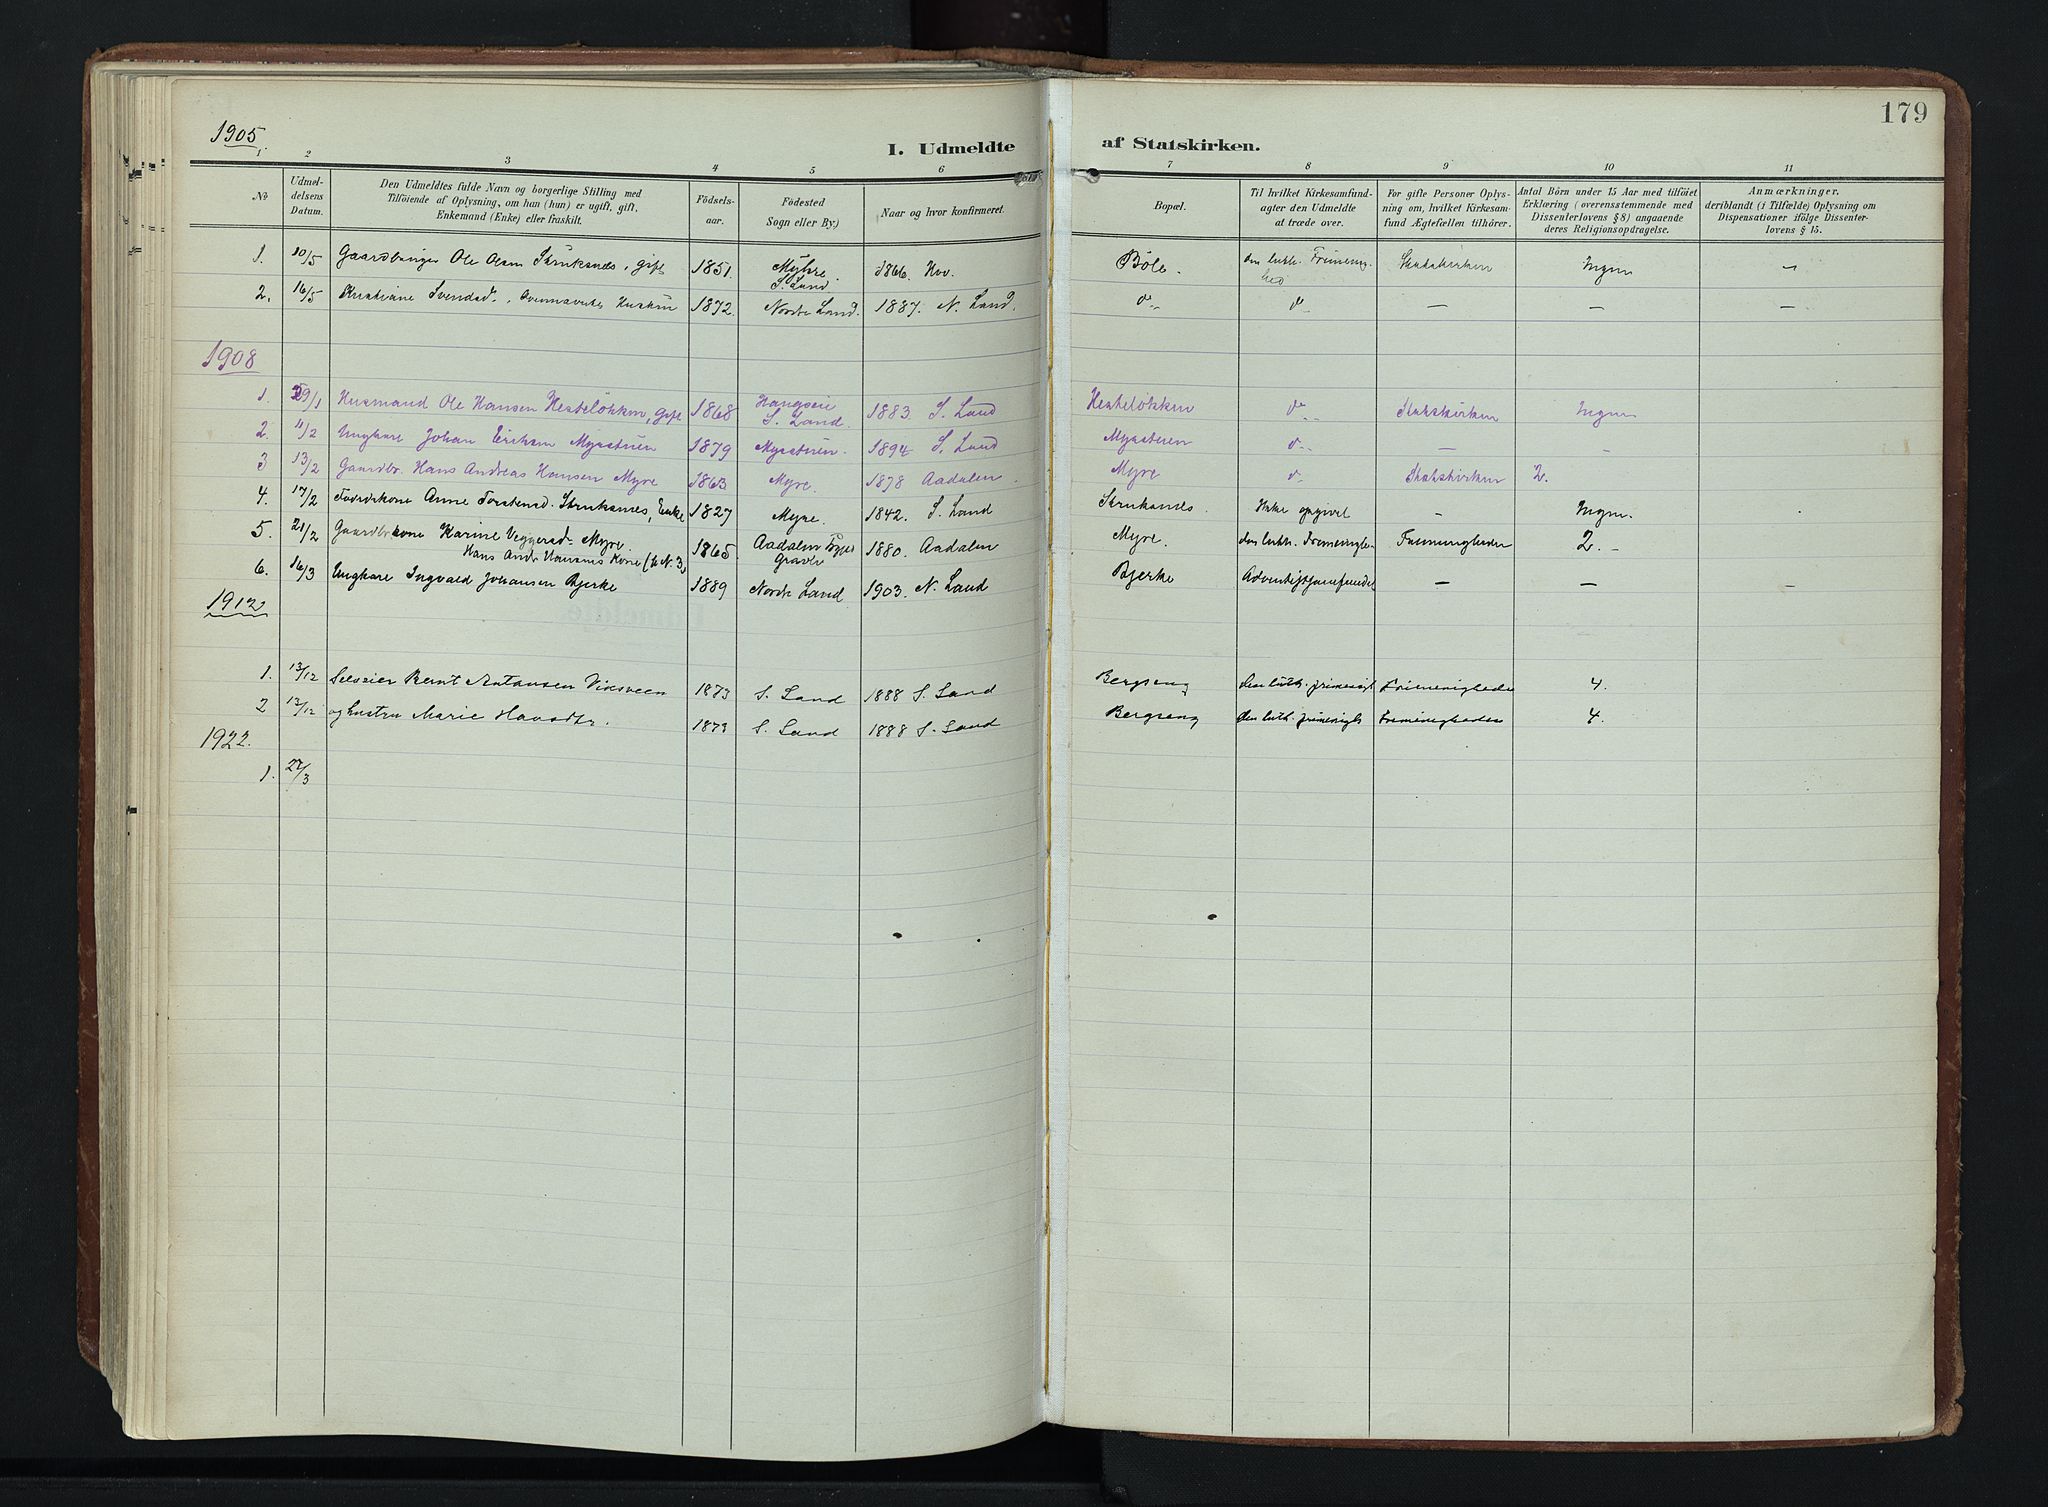 179
1905
I. Udmeldte af Statskirken.
1 2 3 4 5 6 7 8 9 10 11
№
Udmel-
delsens
Datum.
Den Udmeldtes fulde Navn og borgerlige Stilling med
Tilföiende af Oplysning, om han (hun) er ugift, gift,
Enkemand (Enke) eller fraskilt.
Födsels-
aar.
Födested
Sogn eller By.)
Naar og hvor konfirmeret.
Bopæl.
Til hvilket Kirkesamfund-
agter den Udmeldte
at træde over.
For gifte Personer Oplys-
ning om, hvilket Kirkesam-
fund Ægtefællen tilhörer.
Antal Börn under 15 Aar med tilföiet
Erklæring (overensstemmende med
Dissenterlovens § 8) angaaende
deres Religionsopdragelse.
Anmærkninger,
deriblandt (i Tilfælde) Oplysning om
Dispensationer ifölge Dissenter-
lovens § 15.
1. 10/5 Gaardbruger Ole Olsen Skruksnes, gift 1851. Myhre S. Land 1866. Hov. Böle. den luth. Frimenighed Statskirken Ingen —
2. 16/5 Kristiane Svendsd. Hustru 1872. Nordre Land. 1887. N. Land. do do — — —
1908
1. 29/1 Husmand Ole Hansen Hesteløkken, gift 1868 S. Land. 1883. S. Land Hesteløkken do Statskirken Ingen
2. 4/2 Ungkarl Johan Eriksen Myrstuen 1879 Myrstuen. 1894. S. Land Myrstuen do — —
3 13/2 Gaardbr. Hans Andreas Hansen Myre 1863 Myre. 1878 Aadalen. Myre do Statskirken 2.
4. 17/2 Anne Torstensd. Skruksnes, Enke 1827 Myre. 1842. S. Land Skruksnes. Ikke opgivet — Ingen.
5. 21/2 Gaardbrkone Karine Myre. 1865. Aadalen 1880. Aadalen Myre. den luth. Frimenighe Frimenigheden 2. —
Hans Andr. Hansens Kone (se N. 3)
6. 16/3 Ungkarl Ingvald Johansen Bjerke 1889 Nordre Land 1903. N. Land Bjerke Adventistsamfundet — —
1912
1. 13/12 Bernt Antonsen Viksveen 1873 S. Land 1888 S. Land Bergseng den luth. frimenigh Frimenigheden 4.
2 13/12 og hustru Marie 1873 S. Land 1888 S. Land Bergseng den luth. frimenigh Frimenigheden 4.
1922.
1. 27/3